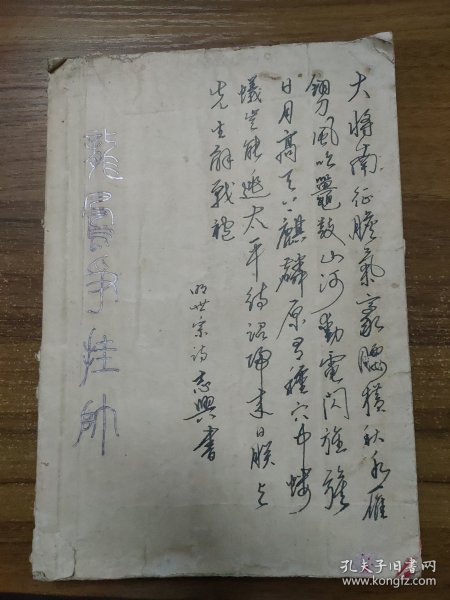 大將南征膽氣豪腰横秋水雁
翎刀風吹鼍鼓山河動電闪旌旗
日月高天上麒麟原有種穴中蝼
蟻岂能逃太平待詔歸来日朕与
先生解戰袍
明世宗诗 志興書
龍鳳爭挂帥
孔夫子旧书网
www.kongfz.com